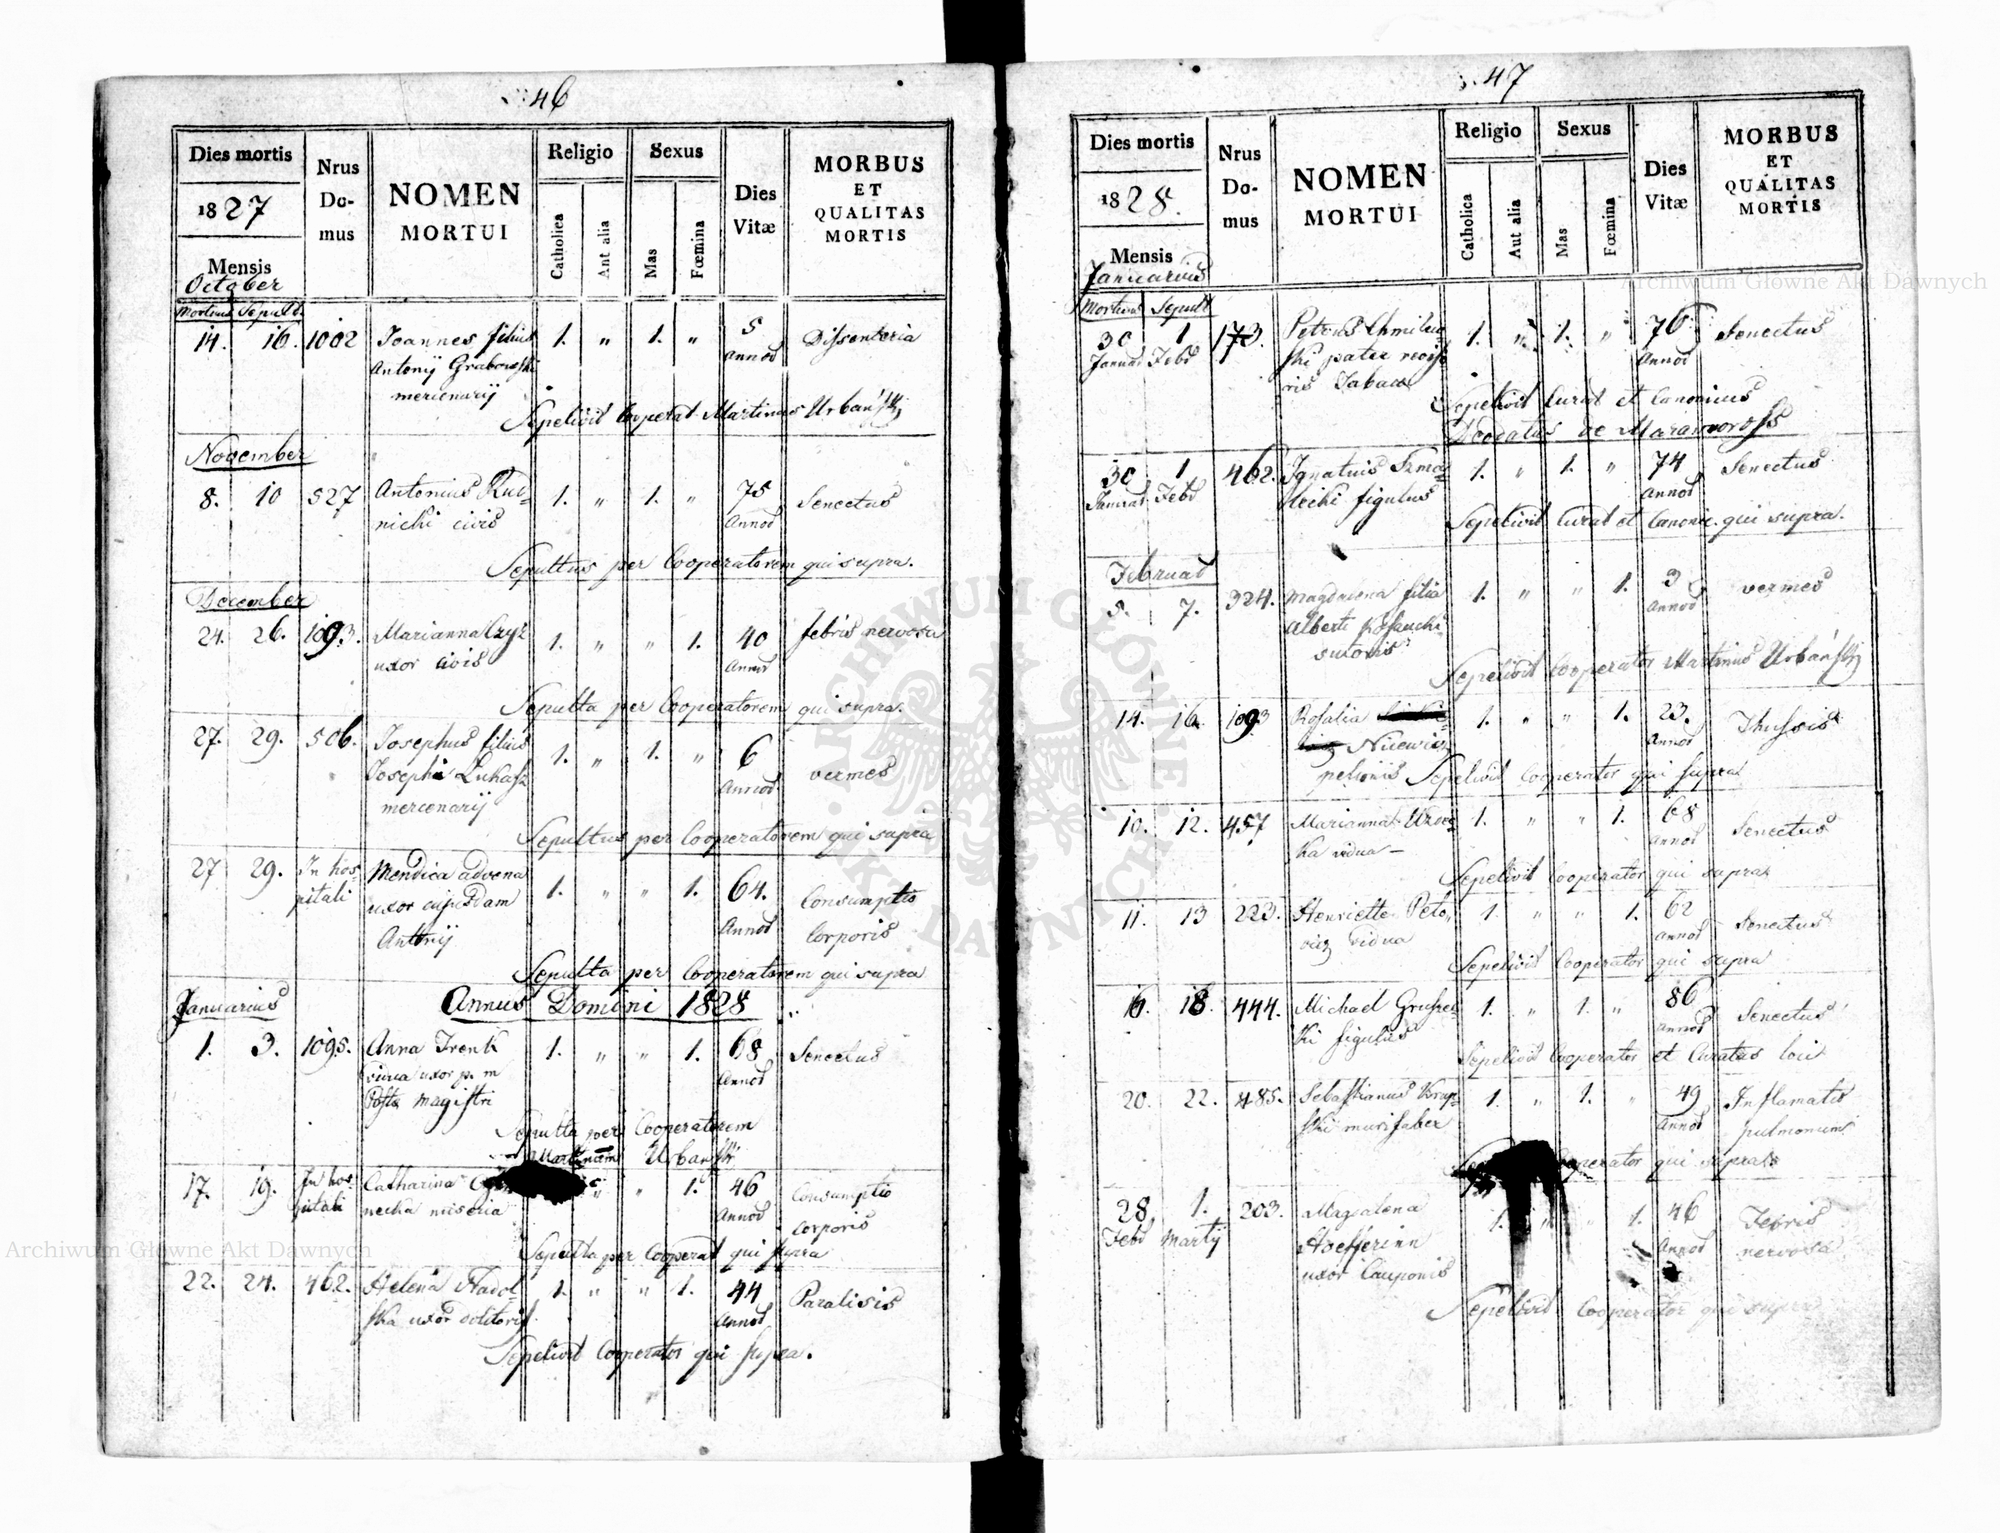 46
Dies mortis
1827
Mensis
October
Mortuus Sepult.
Nrus Domus
NOMEN MORTUI
Religio
Catholica
Aut alia
Sexus
Mas
Fœmina
Dies Vitæ
MORBUS ET QUALITAS MORTIS
14. 16. 1002 Joannes filius 1. " 1. " 5 Dissenteria
Antonij Grabowski Annor
mercenarij
Sepelivit Cooperat Martinus Urbański
November
8. 10 527 Antonius Rud= 1. " 1. " 75 Senectus
nicki civis Annor
Sepultus per Cooperatorem qui supra.
December
24. 26. 1093. Marianna Czyż 1. " " 1. 40 febris nervosa
uxor civis Annor
Sepulta per Cooperatorem qui supra.
27. 29. 506. Josephus filius 1. " 1. " 6 vermes
Josephi Lukasz Annor
mercenarij
Sepultus per Cooperatorem qui supra
27 29. In hos= Mendica advena 1. " " 1. 64. Consumptio
pitali uxor cujusdam Annor Corporis
Antonij
Sepulta per Cooperatorem qui supra
Januarius Annus Domini 1828
1. 3. 1095. Anna Trenk 1. " " 1. 68 Senectus
vidua uxor p. m Annor
Posta magistri
Sepulta per Cooperatorem
Martinum Urbański
17. 19. In hos= Catharina " " 1. 46 Consumptio
pitali necka miseria Annor corporis
Sepulta per Cooperat qui supra
22. 24. 462. Helena Nadol= 1. " " 1. 44 Paralisis
ska uxor dolitoris Annor
Sepelivit Cooperator qui supra.
47
Dies mortis
1828.
Mensis
Januarius
Mortuus Sepult
Nrus Domus
NOMEN MORTUI
Religio
Catholica
Aut alia
Sexus
Mas
Fœmina
Dies Vitæ
MORBUS ET QUALITAS MORTIS
30 1 173. Petrus Chmilew 1. " 1. " 76 Senectus
Januar Febr ski pater Annor
ris Tabaco
Sepelivit Curat et Canonicus
Deodatus de Maramoross
30 1 462. Ignatius Szma= 1. " 1. " 74 Senectus
Januar. Febr figulus Annor
Sepelivit Curat et Canonic. qui supra.
Februar
5. 7. 324. Magdalena filia 1. " " 1. 3 vermes
Alberti Annor
sutoris
Sepelivit Cooperator Martinus Urbański
14. 16. 1093 Rosalia 1. " " 1. 23. Thussis
Annor
pelionis Sepelivit Cooperator qui supra
10. 12. 457 Marianna 1. " " 1. 68 Senectus
ka vidua — Annor
Sepelivit Cooperator qui supra
11. 13 223. Henriette Peto, 1. " " 1. 62 Senectus
vicz vidua Annor
Sepelivit Cooperator qui supra
16. 18. 444. Michael Gruszec 1. " 1. " 86 Senectus
ki figulus Annor
Sepelivit Cooperator et Curatus loci
20. 22. 485. Sebastianus Krup= 1. " 1. " 49 Inflamatio
ski murifaber Annor pulmonum
Cooperator qui supra
28 1. 203. Magdalena 1. " " 1. 46 Febris
Febr Martij Hoefferinn Annor nervosa
uxor Cauponis
Sepelivit Cooperator qui supra
Archiwum Główne Akt Dawnych
Archiwum Główne Akt Dawnych
ARCHIWUM GŁÓWNE AKT DAWNYCH